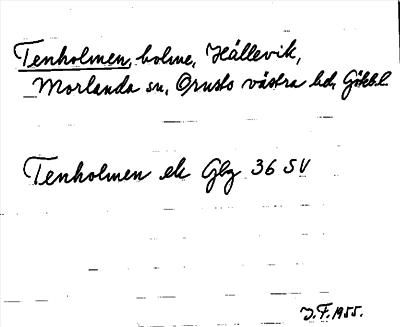 Tenholmen, holme, Hällevik,
Morlanda sn, Orusts västra hd, Götebl.
Tenholmen ek Gbg 36 SV
J.F. 1955.